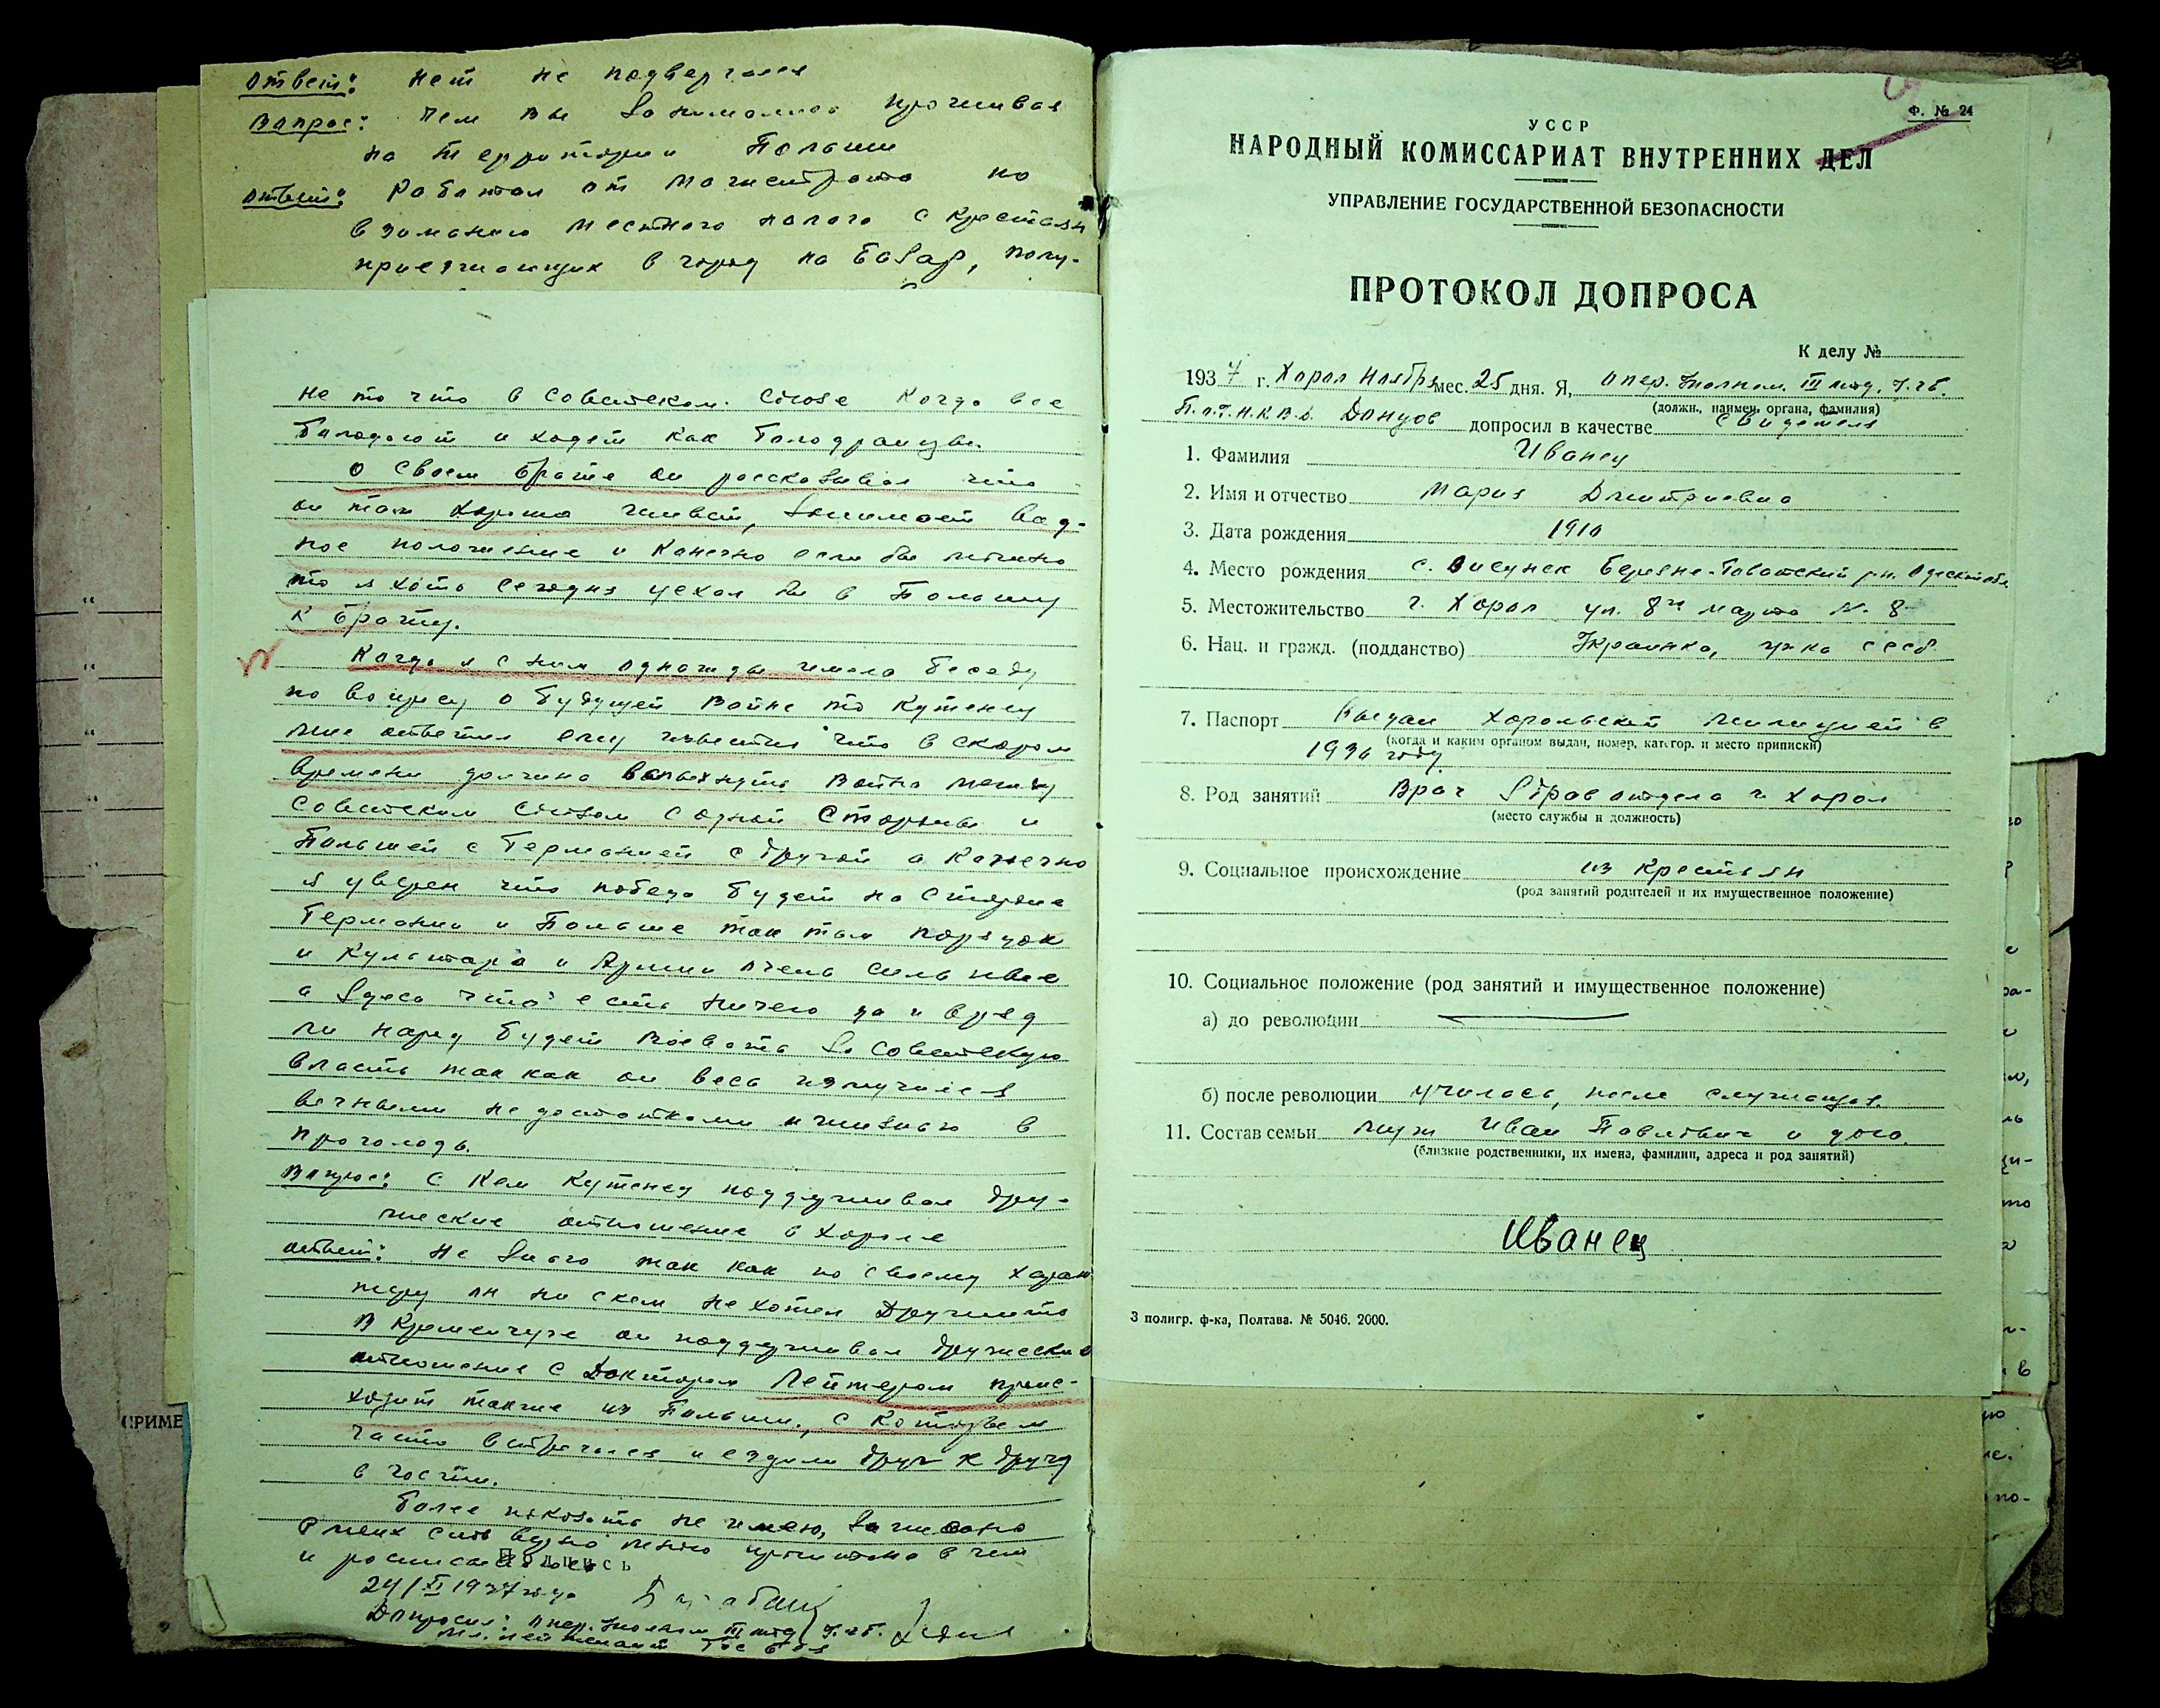 Ответ: Нет не подвергался
Вапрос: Чем вы занимались проживая
на территории Польши
Ответ: Работал от магистрата по
взиманию местного налога с крестьян
приезжающих в город на базар, полу-
не то что в советском. союзе когда все
голодают и ходят как голодранцы.
О своем брате он рассказывал что
он там хорошо живет, занимает вид-
ное положение и конечно если бы можно
то я хоть сегодня уехал бы в Польшу
к брату.
Когда я с ним однажды имела беседу
по вопросу о будущей войне то Кутенец
мне ответил ему известно что в скором
времени должна вспыхнуть война между
Советским союзом с одной стороны и
Польшей с Германией с другой а конечно
я уверен что победа будет на стороне
Германии и Польше так там порядок
и культара и Армии очень сильные
а здесь что есть ничего да и вряд
ли народ будет воевать за советскую
власть так как он весь измучился
вечными недостатками и жизнью в
проголодь.
Вапрос: С кем Кутенец поддерживал дру-
жеские отношение в Хороле
Ответ: Не знаю так как по своему харак
теру он ни скем не хотел дружить
В Кременчуге он поддерживал дружеские
отношение с Доктором Лейтером проис-
ходит также из Польши, с которым
часто встречался и ездили друг к другу
в гости.
Более показать не имею, записано
с моих слов верно мною прочитано в чем
и росписываюсь Подпись
24/XI 1937 года
Допросил: Опер. Уполном III отд. УГБ.
мл. лейтенант Гос без
СРИМЕ
Ф. № 24
УССР
НАРОДНЫЙ КОМИССАРИАТ ВНУТРЕННИХ ДЕЛ
УПРАВЛЕНИЕ ГОСУДАРСТВЕННОЙ БЕЗОПАСНОСТИ
ПРОТОКОЛ ДОПРОСА
К делу №
1937 г. Хорол Ноября мес. 25 дня. Я, Опер. Уполном. III отд. УГБ.
(должн., наимен. органа, фамилия)
П.О.У.Н.К.В.Д. Донцов допросил в качестве свидетеля
1. Фамилия Иванец
2. Имя и отчество Мария Дмитриевна
3. Дата рождения 1910
4. Место рождения с. Висунск Березне-Говатский р-н. Одесской обл.
5. Местожительство г. Хорол ул. 8го марта № 8
6. Нац. и гражд. (подданство) Украинка, гр-ка СССР
7. Паспорт Выдан Хорольской милицией в
(когда и каким органом выдан, номер, категор. и место приписки)
1936 году
8. Род занятий Врач Здравотдела г. Хорол
(место службы и должность)
9. Социальное происхождение из крестьян
(род занятий родителей и их имущественное положение)
10. Социальное положение (род занятий и имущественное положение)
а) до революции
б) после революции училась, после служащая.
11. Состав семьи муж Иван Павлович и дочь.
(близкие родственники, их имена, фамилии, адреса и род занятий)
Иванец
3 полигр. ф-ка, Полтава. № 5046. 2000.